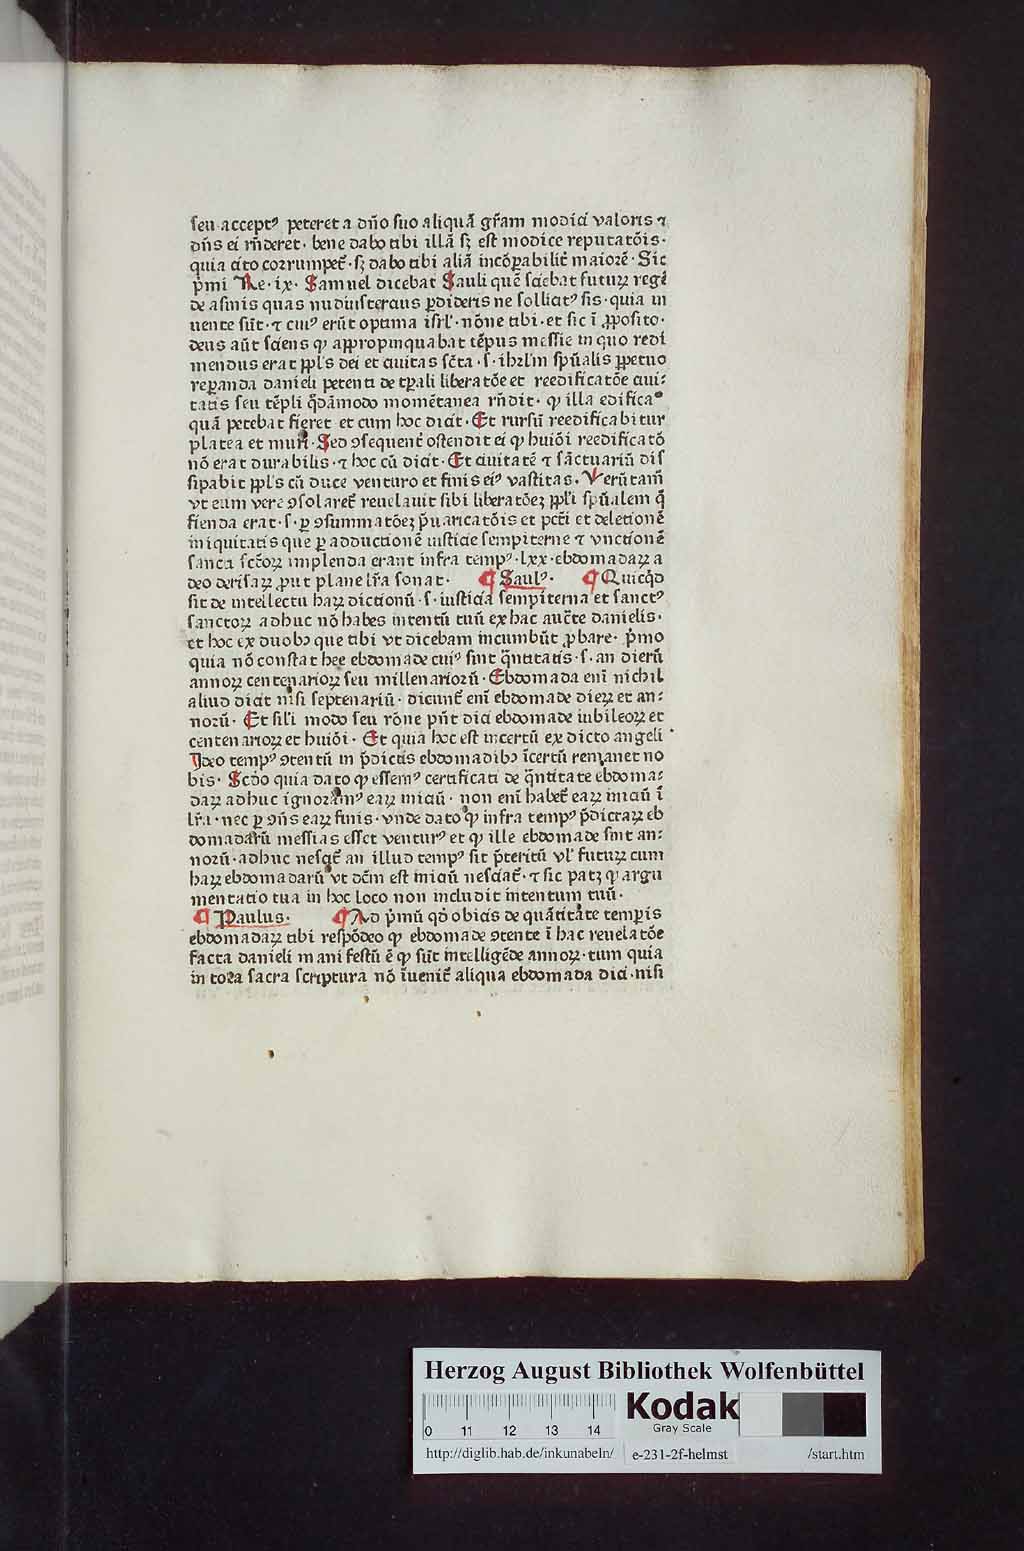 seu acceptꝰ peteret a dño suo aliquã gr̃am modici valoris ⁊
dñs ei rñderet · bene dabo tibi illã sʒ est modice reputatõis ·
quia cito corrumpet̃ · sʒ dabo tibi aliã incõꝑabilit̃ maiorẽ · Sic
p̃mi Re · ix · Samuel dicebat Sauli quẽ sciebat futuꝝ regẽ
de asinis quas nudiustercius ꝑdideris ne sollicitꝰ sis · quia in
uente sũt · ⁊ cuiꝰ erũt optima isrl̃ · nõne tibi · et sic ĩ ꝓposito ·
deus aũt sciens ꝙ appropinquabat tẽpus messie in quo redi
mendus erat ppl̃s dei et ciuitas sc̃ta · s · ihrl̃m spũalis ꝑpetuo
reꝑanda danieli petenti de tꝑali liberatõe et reedificatõe ciui⸗
tatis seu tẽpli q̃dãmodo momẽtanea rñdit · ꝙ illa edificaᵒ
quã petebat fieret et cum hoc dicit · Et rursũ reedificabitur
platea et muri · Sed ꝯsequent̃ ostendit ei ꝙ huiõi reedificatõ
nõ erat durabilis · ⁊ hoc cũ dicit · Et ciuitatẽ ⁊ sãctuariũ dis
sipabit ppl̃s cũ duce venturo et finis eiꝰ vastitas · Verũtam̃
vt eum vere ꝯsolaret̃ reuelauit sibi liberatõeʒ ppl̃i spũalem q̃
fienda erat · s · ꝑ ꝯsummatõeʒ p̃uaricatõis et pcti̇̃ et deletionẽ
iniquitatis que ꝑ adductionẽ iusticie sempiterne ⁊ vnctionẽ
sancta sctõꝝ implenda erant infra tempꝰ · lxx · ebdomadaꝝ a
deo decisaꝝ ꝓut plane lr̃a sonat · ¶ Saulꝰ · ¶ Quicq̃d
sit de intellectu haꝝ dictionũ · s · iusticia sempiterna et sanctꝰ
sanctoꝝ adhuc nõ habes intentũ tuũ ex hac auc̃te danielis ·
et hoc ex duobꝫ que tibi vt dicebam incumbũt ꝓbare · p̃mo
quia nõ constat hee ebdomade cuiꝰ sint q̃ntitatis · s · an dierũ
annoꝝ centenarioꝝ seu millenariorũ · Ebdomada eni̇̃ nichil
aliud dicit nisi septenariũ · dicunt̃ eni̇̃ ebdomade dieꝝ et an⸗
norũ · Et sil̃i modo seu rõne pñt dici ebdomade iubileoꝝ et
centenarioꝝ et huiõi · Et quia hoc est incertũ ex dicto angeli ·
Ideo tempꝰ ꝯtentũ in p̃dictis ebdomadibꝫ ĩcertũ remanet no
bis · Scdo̊ quia dato ꝙ essemꝰ certificati de q̃ntitate ebdoma⸗
daꝝ adhuc ignoramꝰ eaꝝ iniciũ · non eni̇̃ habet̃ eaꝝ iniciũ ĩ
lr̃a · nec ꝑ ꝯñs eaꝝ finis · vnde dato ꝙ infra tempꝰ p̃dictaꝝ eb
domadarũ messias esset venturꝰ et ꝙ ille ebdomade sint an⸗
norũ · adhuc nescit̃ an illud tempꝰ sit p̃teritũ vl̃ futuꝝ cum
haꝝ ebdomadarũ vt dc̃m est iniciũ nesciat̃ · ⁊ sic patʒ ꝙ argu
mentatio tua in hoc loco non includit intentum tuũ ·
¶ Paulus · ¶ Ad p̃mũ qd̊ obicis de quãtitate temꝑis
ebdomadaꝝ tibi respõdeo ꝙ ebdomade ꝯtente ĩ hac reuelatõe
facta danieli manifestũ ẽ ꝙ sũt intelligẽde annoꝝ · tum quia
in tota sacra scriptura nõ ĩuenit̃ aliqua ebdomada dici · nisi
Herzog August Bibliothek Wolfenbüttel
Kodak
Gray Scale
0 11 12 13 14
http://diglib.hab.de/inkunabeln/ e-231-2f-helmst /start.htm